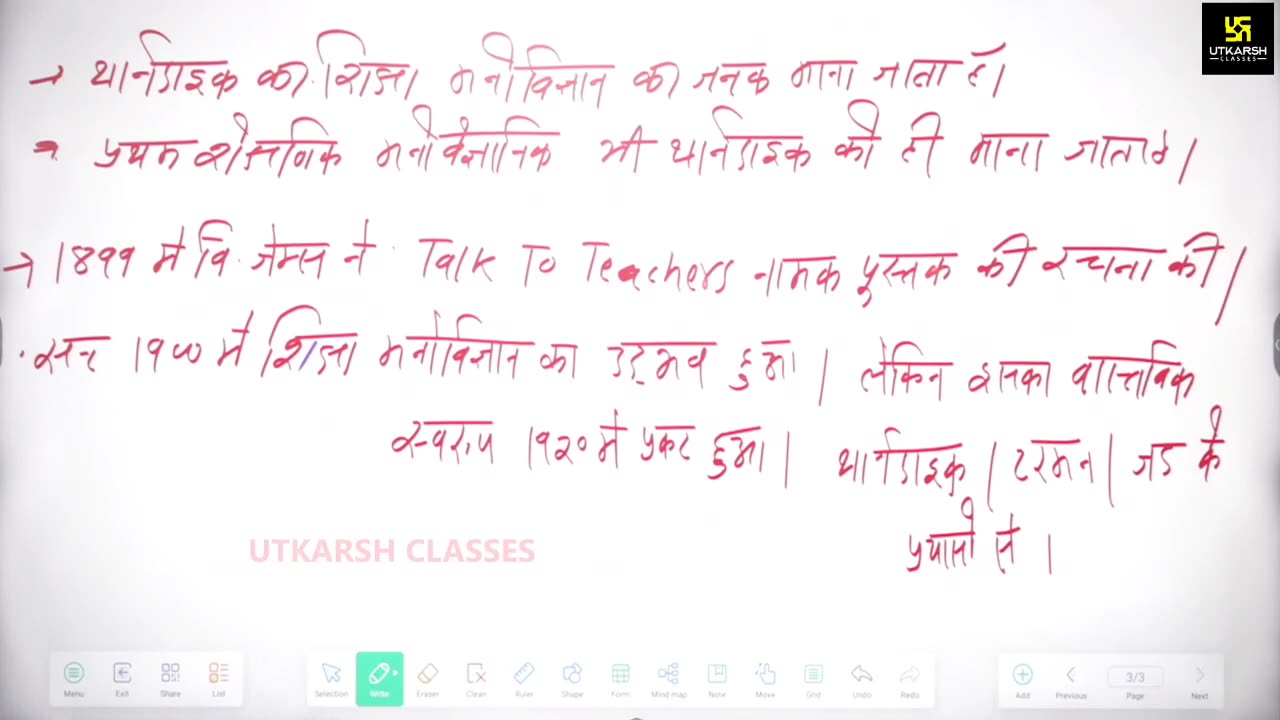 UTKARSH
CLASSES
→ थार्नडाइक को शिक्षा मनोविज्ञान का जनक माना जाता है।
→ प्रथम शैक्षणिक मनोवैज्ञानिक भी थार्नडाइक को ही माना जाता है।
→ 1899 में वि. जेम्स ने Talk To Teachers नामक पुस्तक की रचना की।
• सन् 1900 में शिक्षा मनोविज्ञान का उद्भव हुआ। लेकिन इसका वास्तविक
स्वरुप 1920 में प्रकट हुआ। थार्नडाइक / टरमन / जड के
प्रयासो से।
UTKARSH CLASSES
Menu Exit Share List Selection Write Eraser Clean Ruler Shape Form Mind map Note Move Grid Undo Redo Add Previous 3/3 Page Next